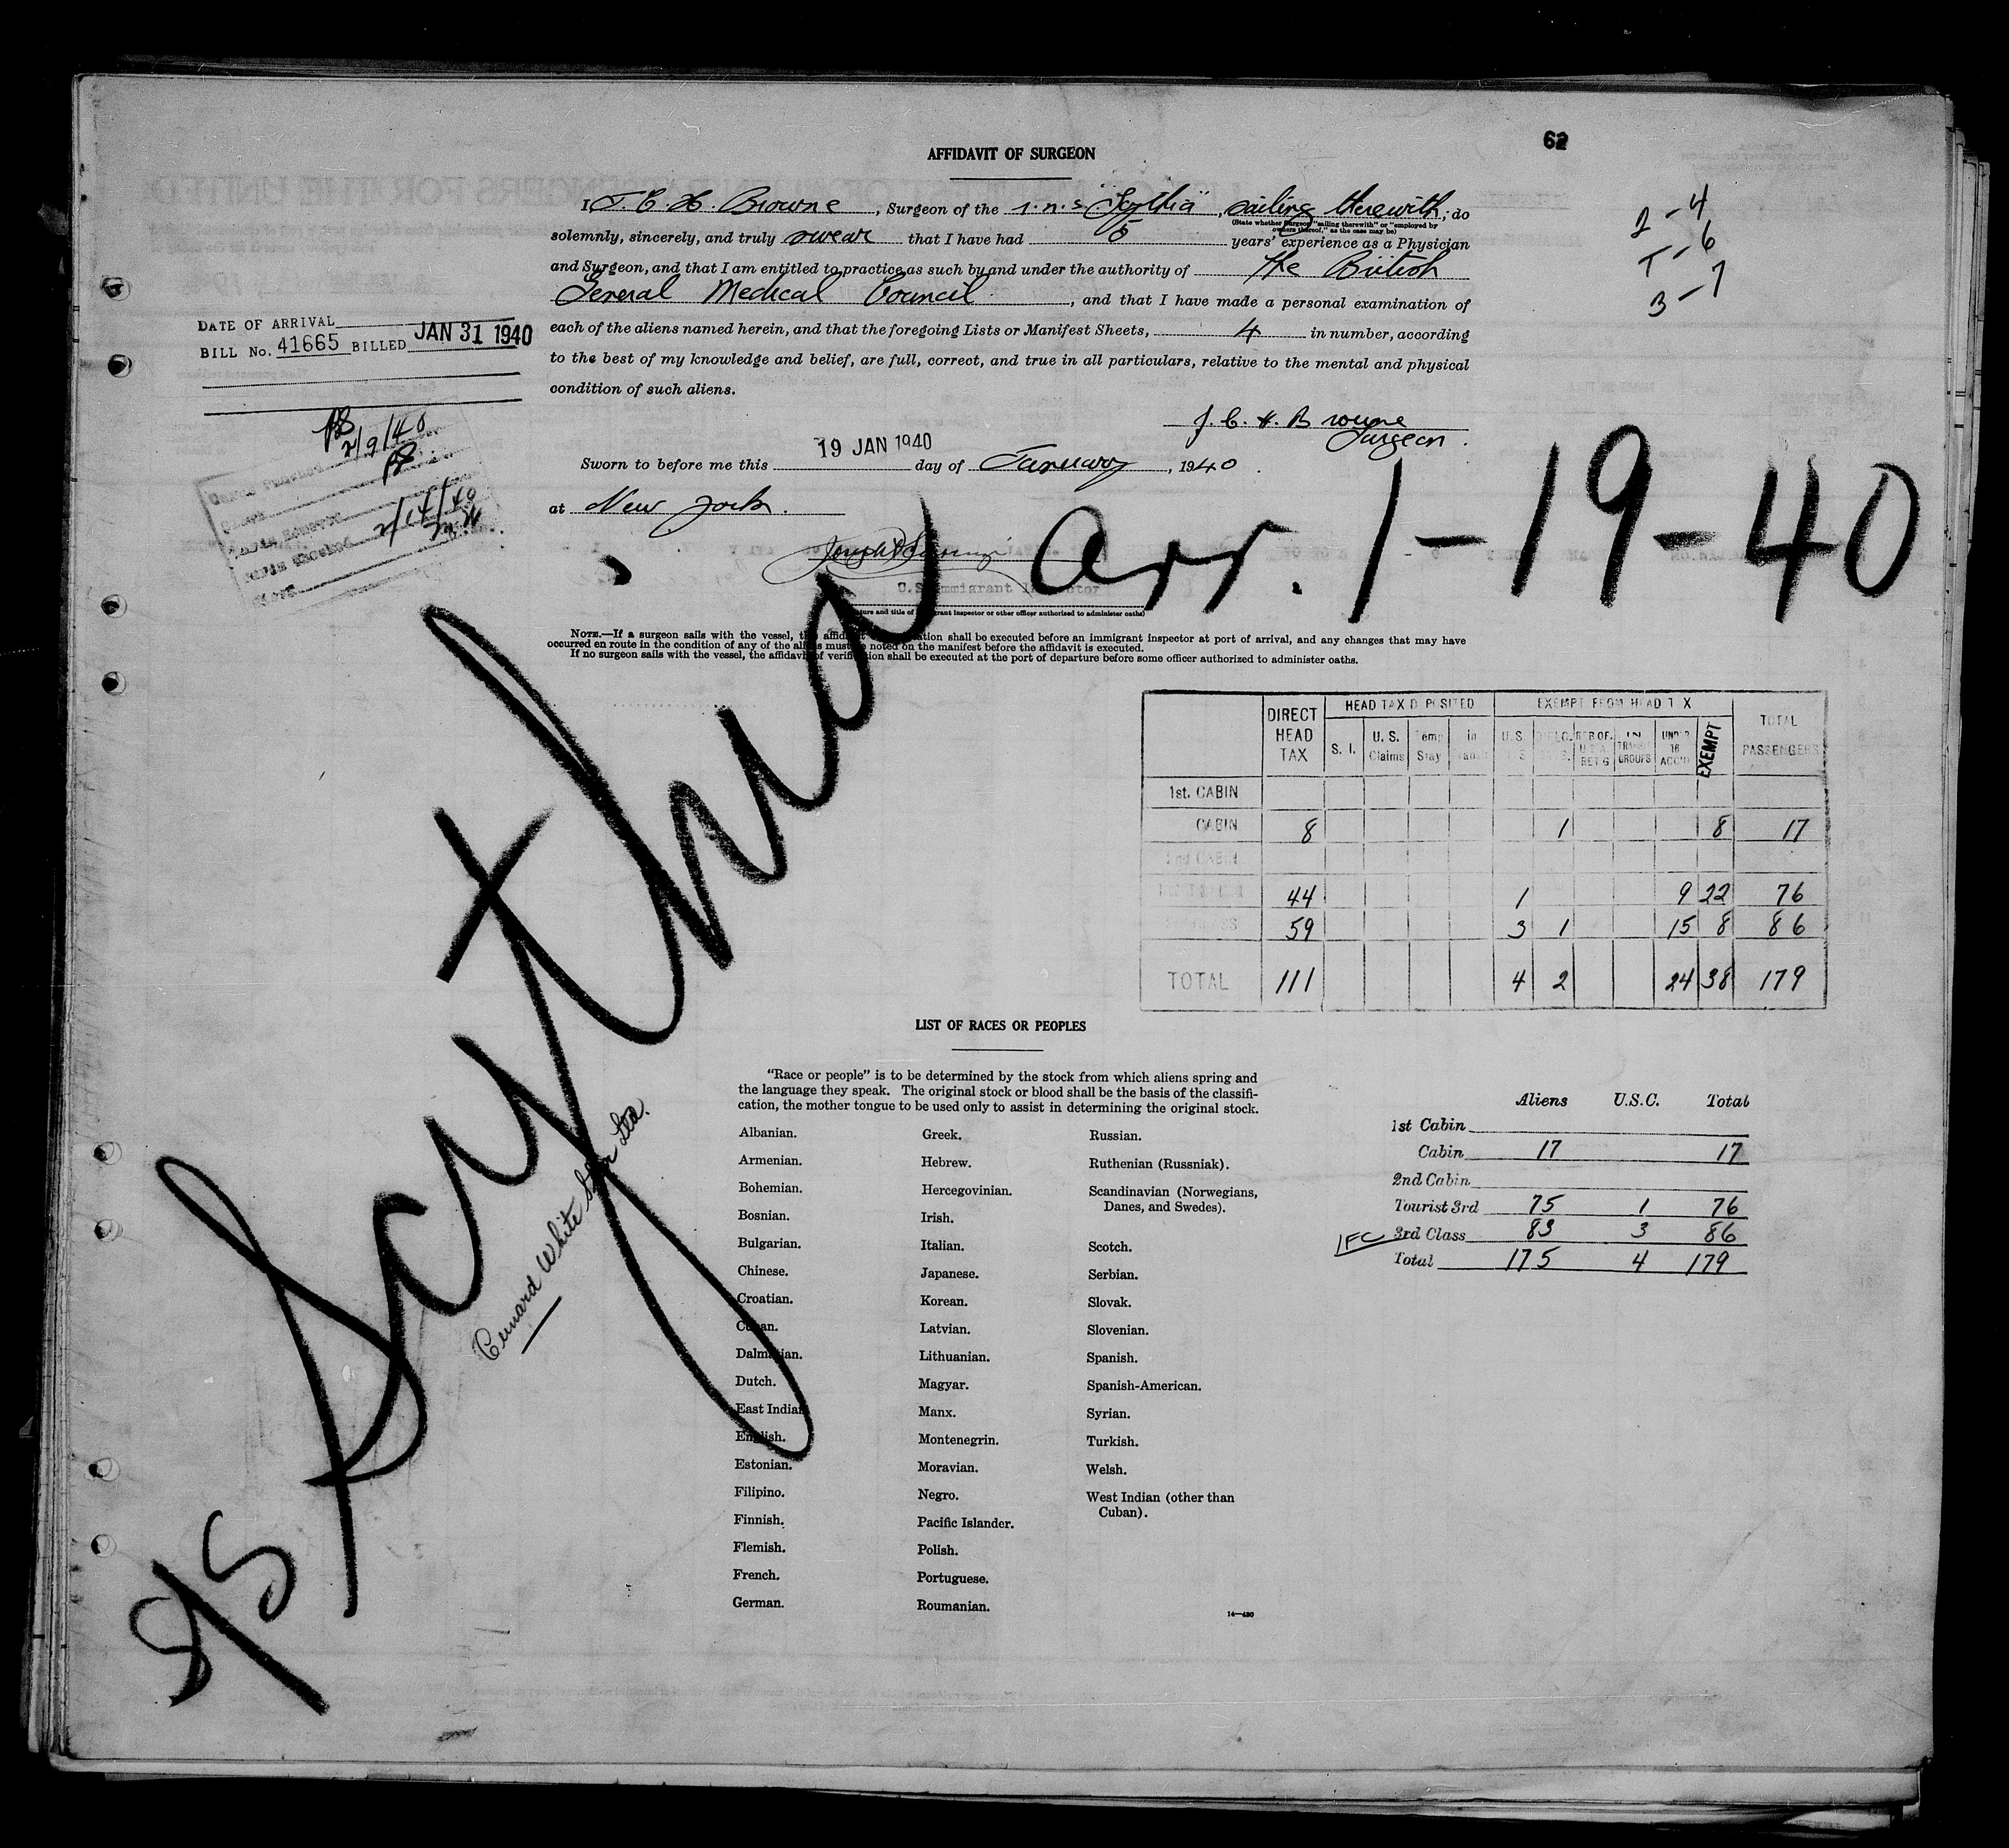 62
AFFIDAVIT OF SURGEON
I J. C. H. Browne, Surgeon of the s.n.s "Scythia", sailing therewith; do
(State whether Surgeon "sailing therewith" or "employed by
owners thereof," as the case may be)
solemnly, sincerely, and truly swear that I have had 5 years' experience as a Physician
and Surgeon, and that I am entitled to practice as such by and under the authority of the British
General Medical Council, and that I have made a personal examination of
each of the aliens named herein, and that the foregoing Lists or Manifest Sheets, 4 in number, according
to the best of my knowledge and belief, are full, correct, and true in all particulars, relative to the mental and physical
condition of such aliens.
2 - 4
T - 6
3 - 7
DATE OF ARRIVAL
BILL No. 41665 BILLED JAN 31 1940
2/9/40
2/14/40
J. C. H. Browne
Surgeon.
Sworn to before me this 19 JAN 1940 day of January, 1940.
at New York.
U.S. Immigrant Inspector
NOTE.—If a surgeon sails with the vessel, the affidavit shall be executed before an immigrant inspector at port of arrival, and any changes that may have
occurred en route in the condition of any of the aliens must be noted on the manifest before the affidavit is executed.
If no surgeon sails with the vessel, the affidavit of verification shall be executed at the port of departure before some officer authorized to administer oaths.
S/S Scythia arr. 1-19-40
Cunard White Star Ltd.
DIRECT HEAD TAX HEAD TAX DEPOSITED EXEMPT FROM HEAD TAX TOTAL PASSENGERS
S. I. U. S. Claims Temp Stay In Transit U.S. UNDER 16 ACC'D EXEMPT
1st. CABIN
CABIN 8 1 8 17
2nd CABIN
44 1 9 22 76
59 3 1 15 8 86
TOTAL 111 4 2 24 38 179
LIST OF RACES OR PEOPLES
"Race or people" is to be determined by the stock from which aliens spring and
the language they speak. The original stock or blood shall be the basis of the classifi-
cation, the mother tongue to be used only to assist in determining the original stock.
Albanian.
Armenian.
Bohemian.
Bosnian.
Bulgarian.
Chinese.
Croatian.
Cuban.
Dalmatian.
Dutch.
East Indian.
English.
Estonian.
Filipino.
Finnish.
Flemish.
French.
German.
Greek.
Hebrew.
Hercegovinian.
Irish.
Italian.
Japanese.
Korean.
Latvian.
Lithuanian.
Magyar.
Manx.
Montenegrin.
Moravian.
Negro.
Pacific Islander.
Polish.
Portuguese.
Roumanian.
Russian.
Ruthenian (Russniak).
Scandinavian (Norwegians,
Danes, and Swedes).
Scotch.
Serbian.
Slovak.
Slovenian.
Spanish.
Spanish-American.
Syrian.
Turkish.
Welsh.
West Indian (other than
Cuban).
14—430
Aliens U.S.C. Total
1st Cabin
Cabin 17 17
2nd Cabin
Tourist 3rd 75 1 76
1FC 3rd Class 83 3 86
Total 175 4 179